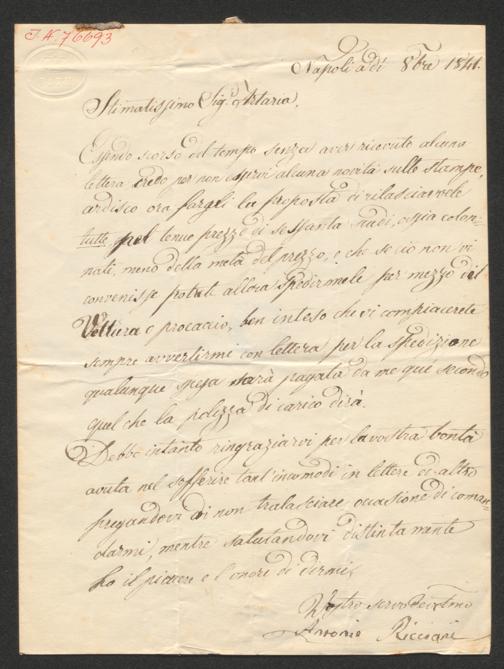 I.N. 76693
Napoli a dì 8bre 1841.
Stimatissimo Sig.r Artaria.
Essendo scorso del tempo senza aver ricevuto alcuna
lettera credo per non esservi alcuna novità sulle stampe,
ardisco ora fargli la proposta di rilasciarvele
tutte pel tenue prezzo di sessanta scudi, ossia colon-
nati, meno della metà del prezzo, e che se ciò non vi
convenisse potete allora spedirmele per mezzo del
Vettura o procaccio, ben inteso che vi compiacerete
sempre avvertirmi con lettera per la spedizione
qualunque spesa sarà pagata da me quì secondo
quel che la polizza di carico dirà.
Debbo intanto ringraziarvi per la vostra bontà
avuta nel sofferire tant'incomodi in lettere ed altro
pregandovi di non tralasciare occasione di coman-
darmi, mentre salutandovi distintamente
ho il piacere e l'onore di dirmi,
Vostro servo
Antonio Ricciani